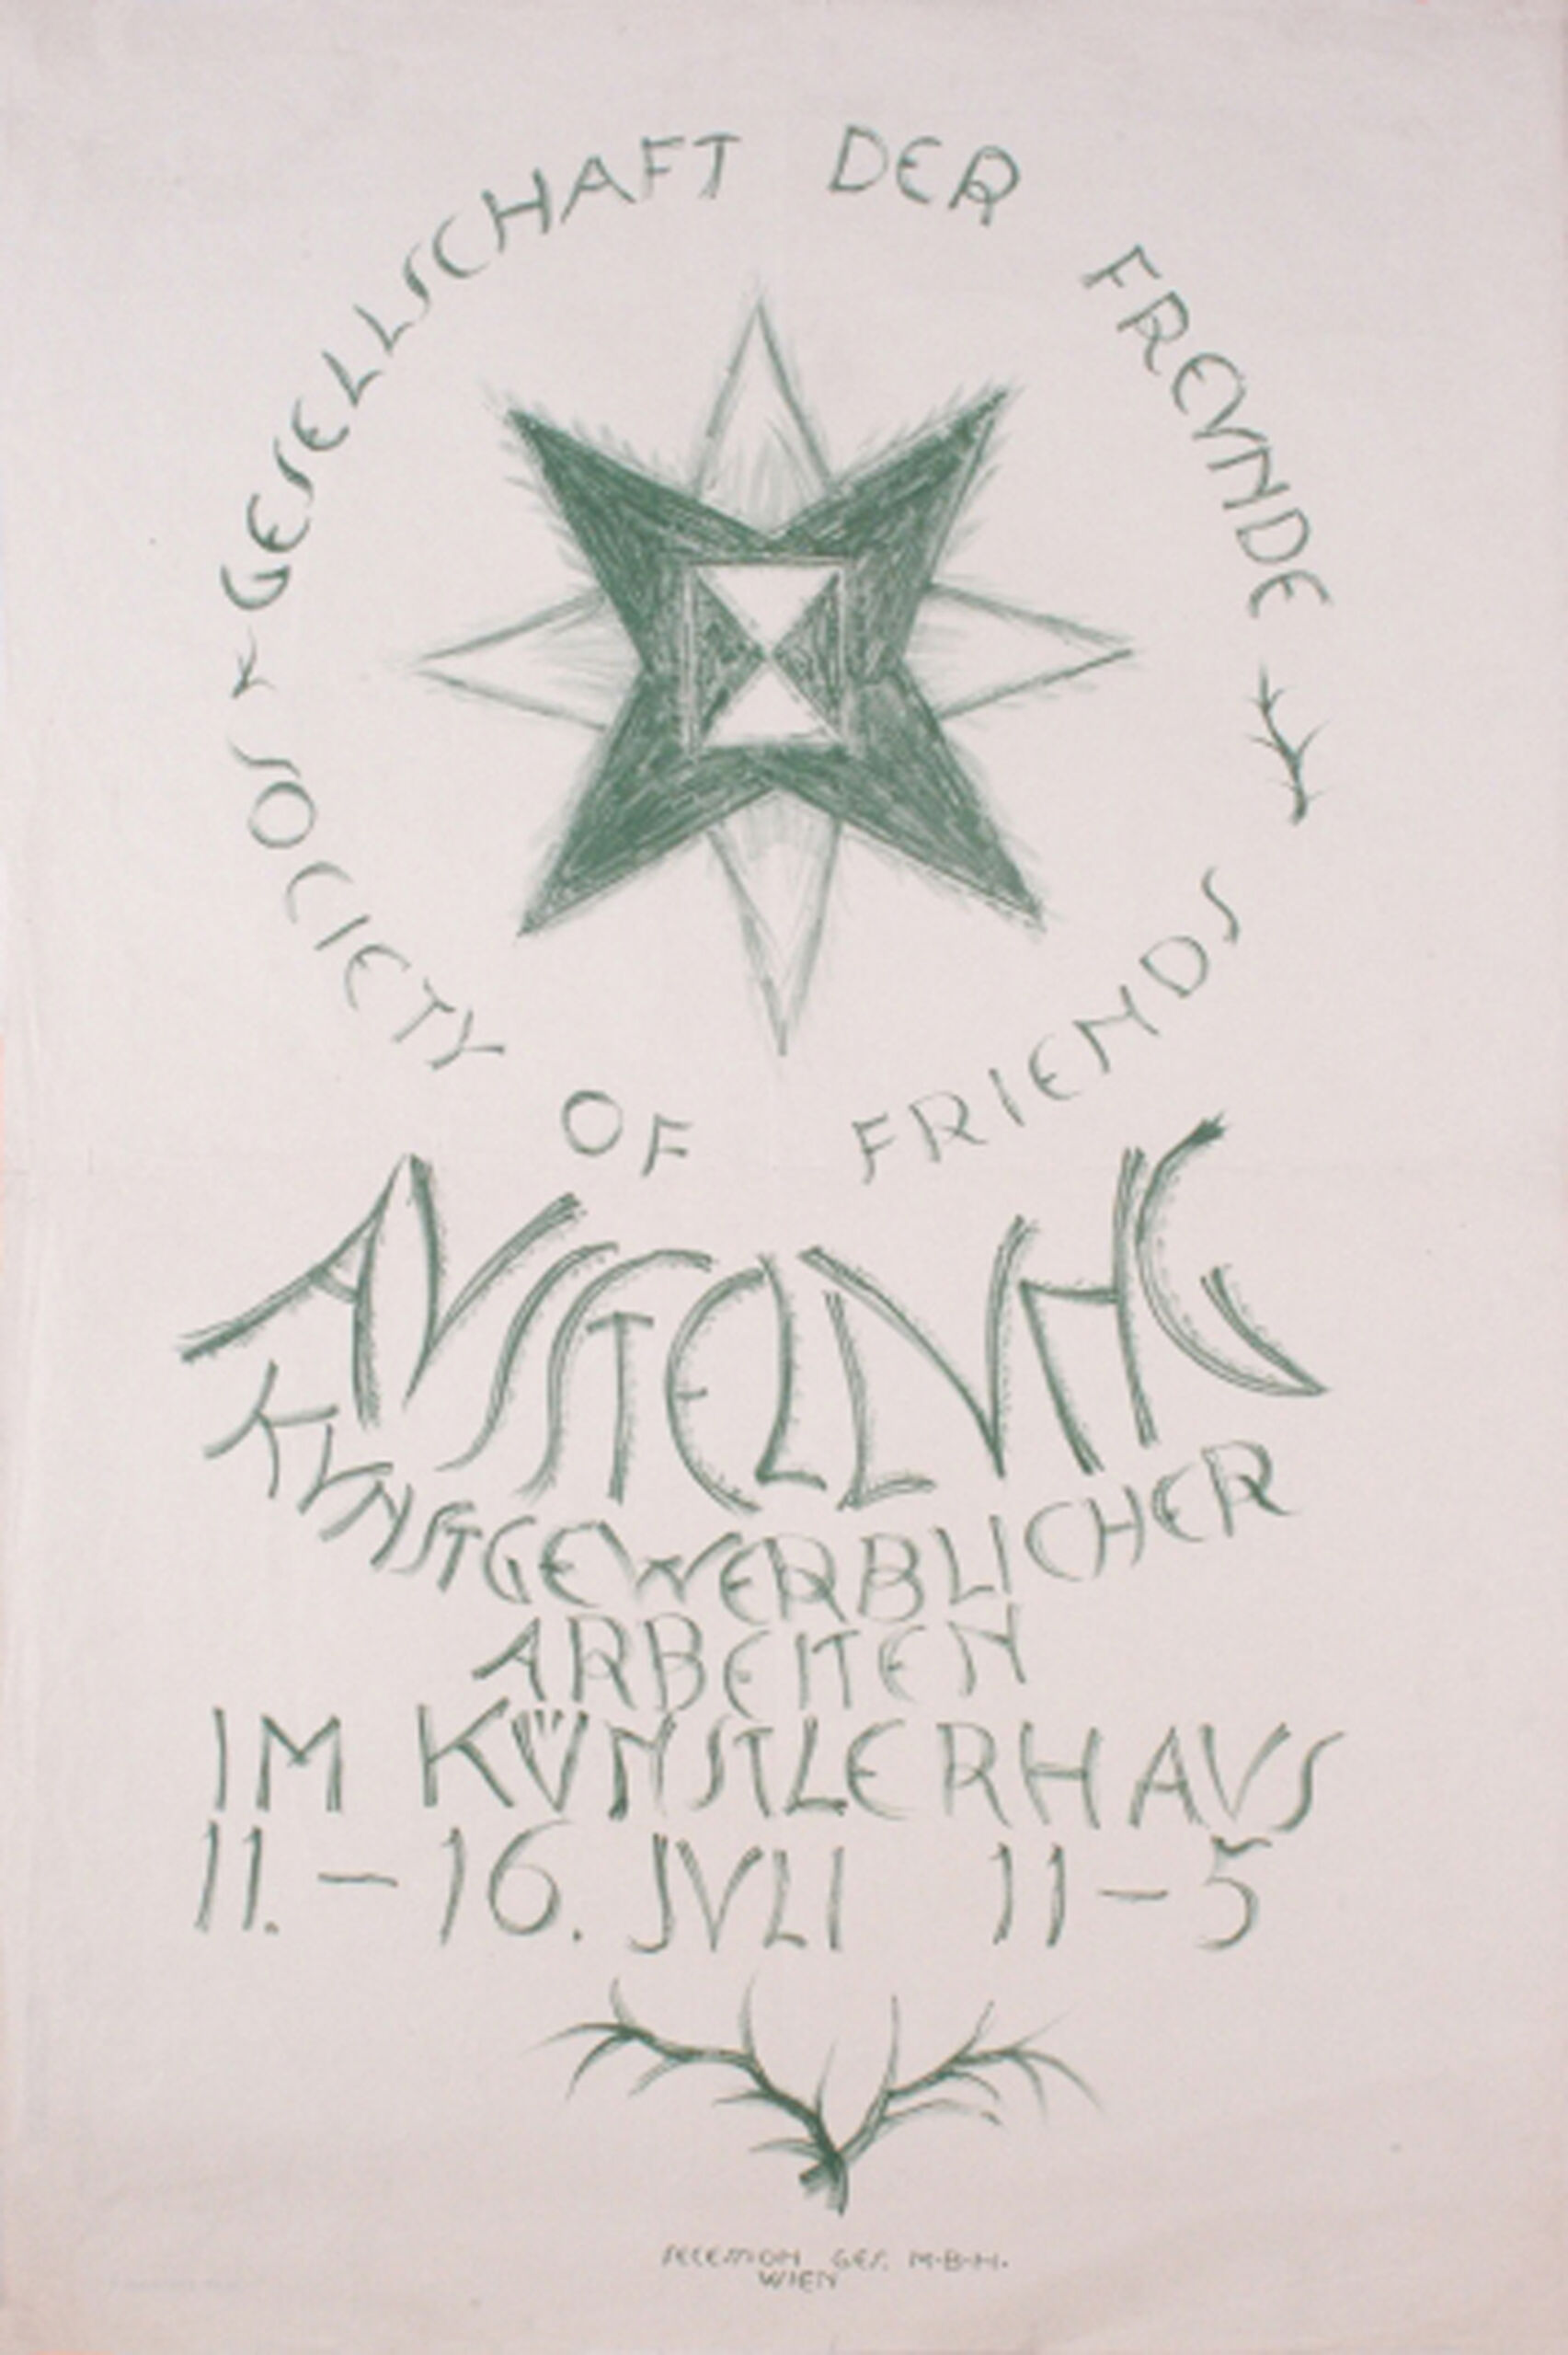 GESELLSCHAFT DER FREVNDE
SOCIETY OF FRIENDS
AVSSTELLVNG
KVNSTGEWERBLICHER
ARBEITEN
IM KÜNSTLERHAVS
11.–16. JVLI 11–5
SECESSION GES. M·B·H.
WIEN